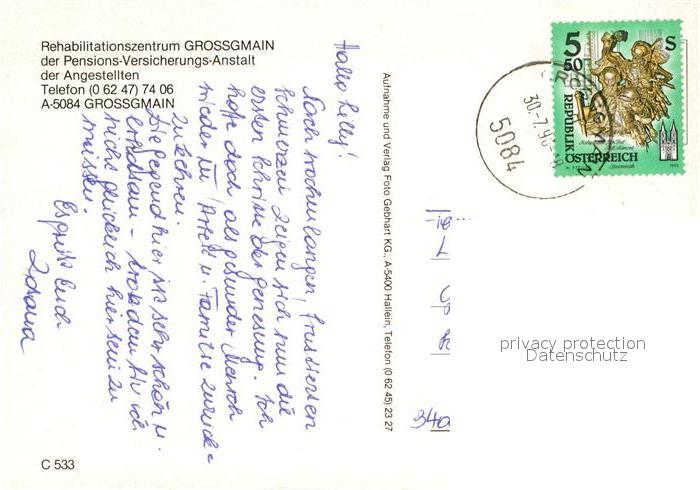 Rehabilitationszentrum GROSSGMAIN
der Pensions-Versicherungs-Anstalt
der Angestellten
Telefon (0 62 47) 74 06
A-5084 GROSSGMAIN
Hallo Lilly!
Nach wochenlangen, frustrierten
Schmerzen zeigen sich nun die
ersten Schritte der Genesung. Ich
hoffe doch als gesunder Mensch
wieder in Arbeit u. Familie zurück-
zukehren.
Die Gegend hier ist sehr schön u.
erholsam - trotzdem bin ich
nicht glücklich hier sein zu
müssen.
Es grüßt Euch
C 533
Aufnahme und Verlag Foto Gebhart KG., A-5400 Hallein, Telefon (0 62 45) 23 27
5 50 S
REPUBLIK
ÖSTERREICH
30.-7.9
5084
privacy protection
Datenschutz
340